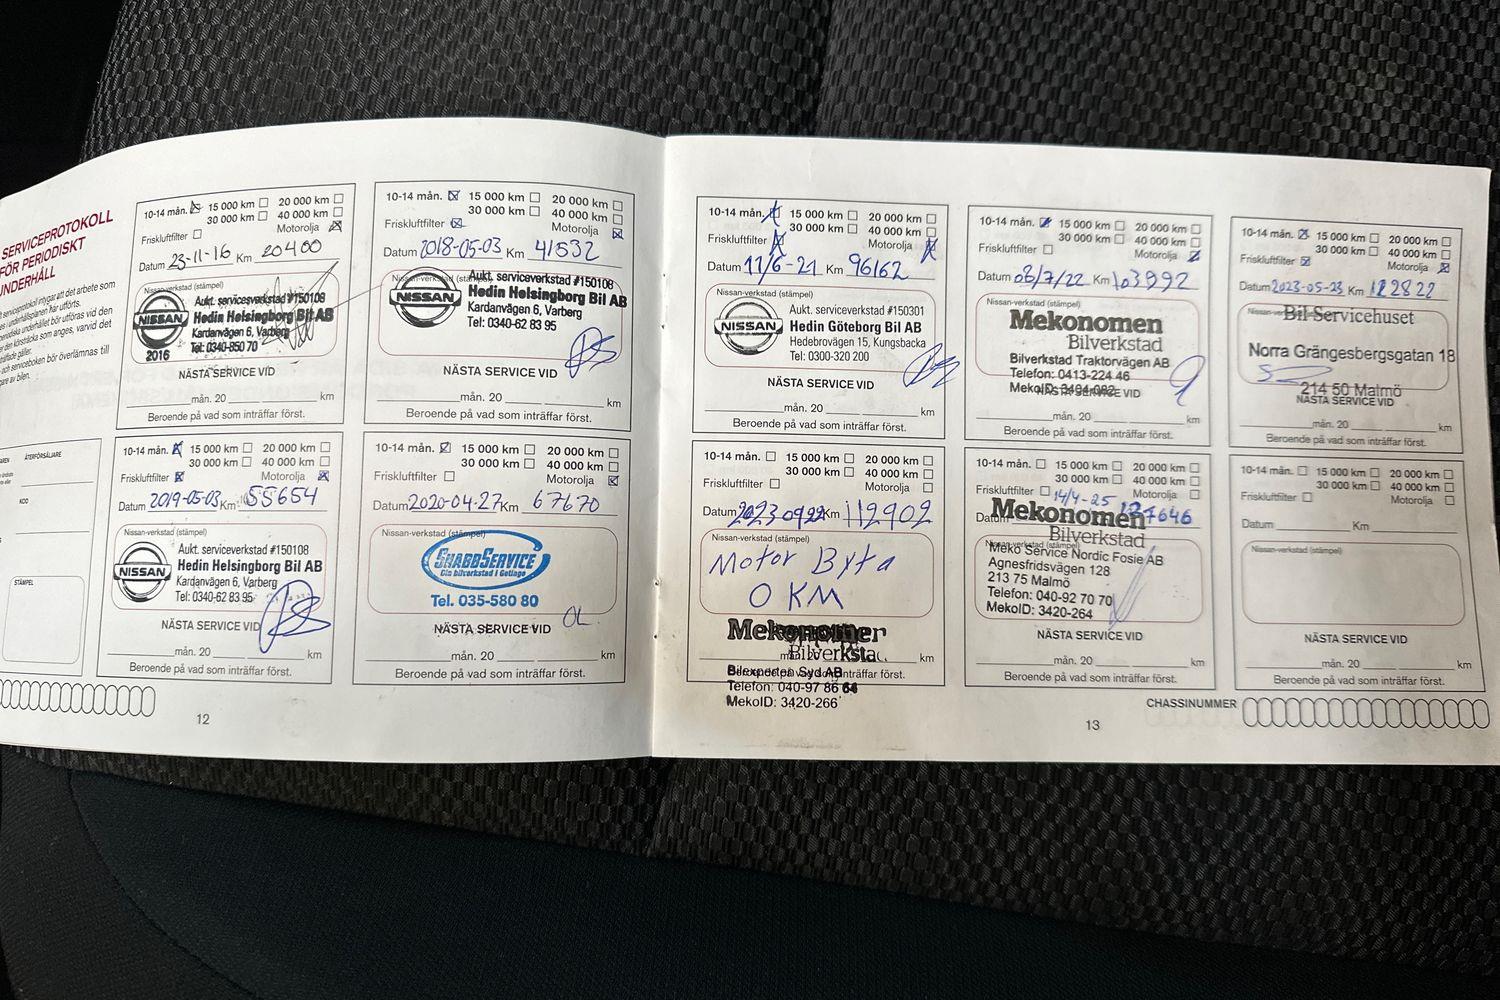 SERVICEPROTOKOLL
FÖR PERIODISKT
UNDERHÅLL
serviceprotokoll intygar att det arbete som
och serviceboken bör överlämnas till
av bilen.
ÅTERFÖRSÄLJARE
KOD
STÄMPEL
10-14 mån. 15 000 km 20 000 km
30 000 km 40 000 km
Friskluftfilter Motorolja
Datum 23-11-16 Km 20400
Nissan-verkstad (stämpel)
NISSAN
2016
Aukt. serviceverkstad #150108
Hedin Helsingborg Bil AB
Kardanvägen 6, Varberg
Tel: 0340-850 70
NÄSTA SERVICE VID
mån. 20 km
Beroende på vad som inträffar först.
10-14 mån. 15 000 km 20 000 km
30 000 km 40 000 km
Friskluftfilter Motorolja
Datum 2018-05-03 Km 41532
Nissan-verkstad (stämpel)
NISSAN
Aukt. serviceverkstad #150108
Hedin Helsingborg Bil AB
Kardanvägen 6, Varberg
Tel: 0340-62 83 95
NÄSTA SERVICE VID
mån. 20 km
Beroende på vad som inträffar först.
10-14 mån. 15 000 km 20 000 km
30 000 km 40 000 km
Friskluftfilter Motorolja
Datum 2019-05-03 Km 55654
Nissan-verkstad (stämpel)
NISSAN
Aukt. serviceverkstad #150108
Hedin Helsingborg Bil AB
Kardanvägen 6, Varberg
Tel: 0340-62 83 95
NÄSTA SERVICE VID
mån. 20 km
Beroende på vad som inträffar först.
10-14 mån. 15 000 km 20 000 km
30 000 km 40 000 km
Friskluftfilter Motorolja
Datum 2020-04-27 Km 67670
Nissan-verkstad (stämpel)
SNABBSERVICE
Din bilverkstad i Getinge
Tel. 035-580 80
NÄSTA SERVICE VID
mån. 20 km
Beroende på vad som inträffar först.
12
10-14 mån. 15 000 km 20 000 km
30 000 km 40 000 km
Friskluftfilter Motorolja
Datum 11/6-21 Km 96162
Nissan-verkstad (stämpel)
NISSAN
Aukt. serviceverkstad #150301
Hedin Göteborg Bil AB
Hedebrovägen 15, Kungsbacka
Tel: 0300-320 200
NÄSTA SERVICE VID
mån. 20 km
Beroende på vad som inträffar först.
10-14 mån. 15 000 km 20 000 km
30 000 km 40 000 km
Friskluftfilter Motorolja
Datum 08/7/22 Km 103992
Nissan-verkstad (stämpel)
Mekonomen
Bilverkstad
Bilverkstad Traktorvägen AB
Telefon: 0413-224 46
MekoID:
NÄSTA SERVICE VID
mån. 20 km
Beroende på vad som inträffar först.
10-14 mån. 15 000 km 20 000 km
30 000 km 40 000 km
Friskluftfilter Motorolja
Datum 2023-05-23 Km
Nissan-verkstad (stämpel)
Bil Servicehuset
Norra Grängesbergsgatan 18
214 50 Malmö
NÄSTA SERVICE VID
mån. 20 km
Beroende på vad som inträffar först.
10-14 mån. 15 000 km 20 000 km
30 000 km 40 000 km
Friskluftfilter Motorolja
Datum 20230922 Km 112902
Nissan-verkstad (stämpel)
Motor Byta
0 KM
Mekonomen
Bilverkstad
mån. 20 km
Bilexperten Syd AB
Telefon: 040-97 86 64
MekoID: 3420-266
10-14 mån. 15 000 km 20 000 km
30 000 km 40 000 km
Friskluftfilter Motorolja
Datum 14/4-25 127646
Nissan-verkstad (stämpel)
Mekonomen
Bilverkstad
Meko Service Nordic Fosie AB
Agnesfridsvägen 128
213 75 Malmö
Telefon: 040-92 70 70
MekoID: 3420-264
NÄSTA SERVICE VID
mån. 20 km
Beroende på vad som inträffar först.
10-14 mån. 15 000 km 20 000 km
30 000 km 40 000 km
Friskluftfilter Motorolja
Datum Km
Nissan-verkstad (stämpel)
NÄSTA SERVICE VID
mån. 20 km
Beroende på vad som inträffar först.
CHASSINUMMER
13